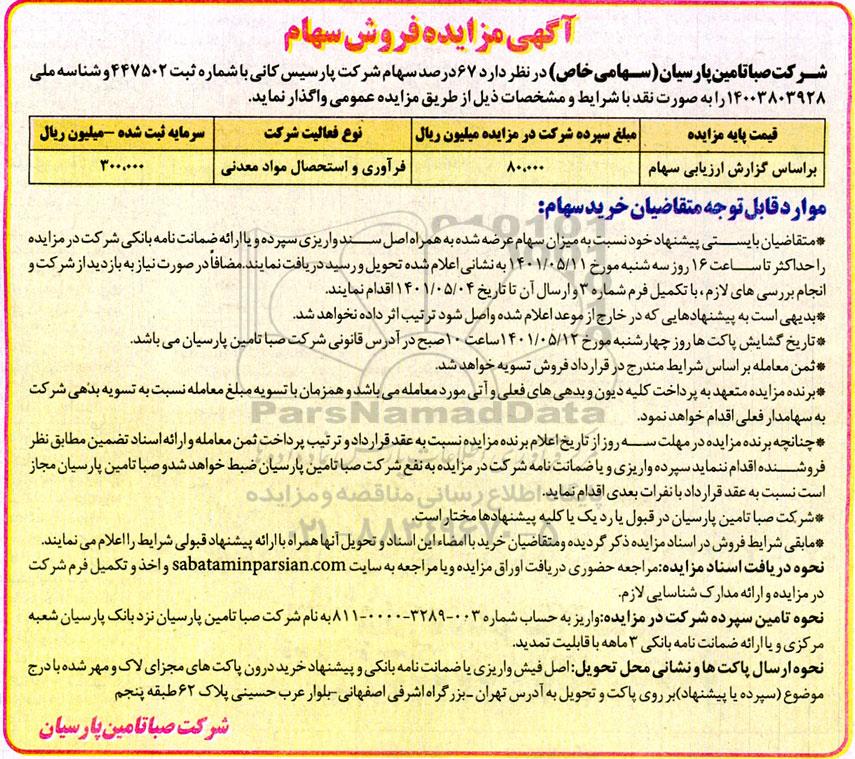 آگهی مزایده فروش سهام
شرکت صبا تامین پارسیان (سهامی خاص) در نظر دارد ۶۷ درصد سهام شرکت پارسیس کانی با شماره ثبت ۴۴۷۵۰۲ و شناسه ملی
۱۴۰۰۳۸۰۳۹۲۸ را به صورت نقد با شرایط و مشخصات ذیل از طریق مزایده عمومی واگذار نماید.
قیمت پایه مزایده | مبلغ سپرده شرکت در مزایده میلیون ریال | نوع فعالیت شرکت | سرمایه ثبت شده –میلیون ریال
براساس گزارش ارزیابی سهام | ۸۰،۰۰۰ | فرآوری و استحصال مواد معدنی | ۳۰۰،۰۰۰
موارد قابل توجه متقاضیان خرید سهام:
*متقاضیان بایستی پیشنهاد خود نسبت به میزان سهام عرضه شده به همراه اصل سند واریزی سپرده و یا ارائه ضمانت نامه بانکی شرکت در مزایده
را حداکثر تا ساعت ۱۶ روز سه شنبه مورخ ۱۴۰۱/۰۵/۱۱ به نشانی اعلام شده تحویل و رسید دریافت نمایند. مضافاً در صورت نیاز به بازدید از شرکت و
انجام بررسی های لازم، با تکمیل فرم شماره ۳ و ارسال آن تا تاریخ ۱۴۰۱/۰۵/۰۴ اقدام نمایند.
*بدیهی است به پیشنهادهایی که در خارج از موعد اعلام شده واصل شود ترتیب اثر داده نخواهد شد.
*تاریخ گشایش پاکت ها روز چهارشنبه مورخ ۱۴۰۱/۰۵/۱۲ ساعت ۱۰ صبح در آدرس قانونی شرکت صبا تامین پارسیان می باشد.
*ثمن معامله بر اساس شرایط مندرج در قرارداد فروش تسویه خواهد شد.
*برنده مزایده متعهد به پرداخت کلیه دیون و بدهی های فعلی و آتی مورد معامله می باشد و همزمان با تسویه مبلغ معامله نسبت به تسویه بدهی شرکت
به سهامدار فعلی اقدام خواهد نمود.
*چنانچه برنده مزایده در مهلت سه روز از تاریخ اعلام برنده مزایده نسبت به عقد قرارداد و ترتیب پرداخت ثمن معامله و ارائه اسناد تضمین مطابق نظر
فروشنده اقدام ننماید سپرده واریزی و یا ضمانت نامه شرکت در مزایده به نفع شرکت صبا تامین پارسیان ضبط خواهد شد و صبا تامین پارسیان مجاز
است نسبت به عقد قرارداد با نفرات بعدی اقدام نماید.
*شرکت صبا تامین پارسیان در قبول یا رد یک یا کلیه پیشنهادها مختار است.
*مابقی شرایط فروش در اسناد مزایده ذکر گردیده و متقاضیان خرید با امضاء این اسناد و تحویل آنها همراه با ارائه پیشنهاد قبولی شرایط را اعلام می نمایند.
نحوه دریافت اسناد مزایده: مراجعه حضوری دریافت اوراق مزایده و یا مراجعه به سایت sabataminparsian.com و اخذ و تکمیل فرم شرکت
در مزایده و ارائه مدارک شناسایی لازم.
نحوه تامین سپرده شرکت در مزایده: واریز به حساب شماره ۰۰۳-۳۲۸۹-۰۰۰۰-۸۱۱ به نام شرکت صبا تامین پارسیان نزد بانک پارسیان شعبه
مرکزی و یا ارائه ضمانت نامه بانکی ۳ ماهه با قابلیت تمدید.
نحوه ارسال پاکت ها و نشانی محل تحویل: اصل فیش واریزی یا ضمانت نامه بانکی و پیشنهاد خرید درون پاکت های مجزای لاک و مهر شده با درج
موضوع (سپرده یا پیشنهاد) بر روی پاکت و تحویل به آدرس تهران -بزرگراه اشرفی اصفهانی-بلوار عرب حسینی پلاک ۶۲ طبقه پنجم
شرکت صبا تامین پارسیان
ParsNamadData
پایگاه اطلاع رسانی مناقصه و مزایده